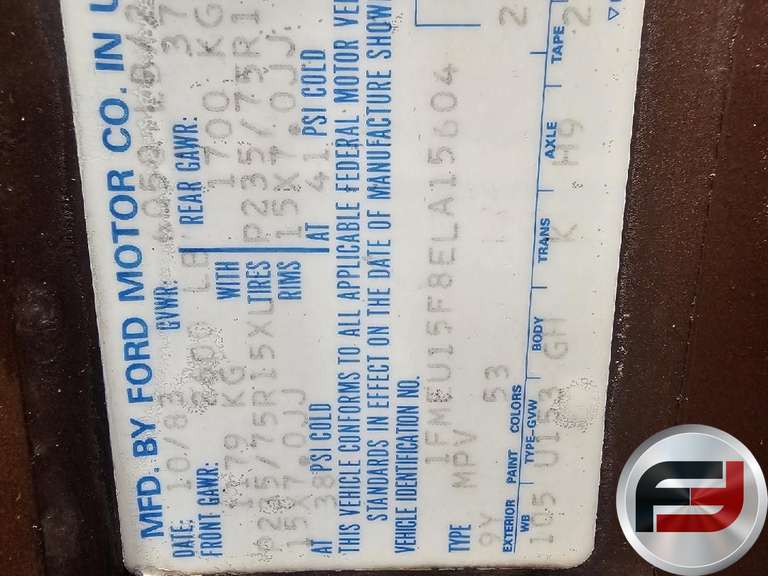 MFD. BY FORD MOTOR CO. IN U
DATE: 10/83 GVWR:
FRONT GAWR: LB REAR GAWR:
KG WITH 1700 KG
/75R15XL TIRES P235/75R1
15X7.0JJ RIMS 15X7.0JJ
AT 38 PSI COLD AT 41 PSI COLD
THIS VEHICLE CONFORMS TO ALL APPLICABLE FEDERAL MOTOR VE
STANDARDS IN EFFECT ON THE DATE OF MANUFACTURE SHOW
VEHICLE IDENTIFICATION NO.
1FMEU15F8ELA15604
TYPE MPV
9Y 53 2
EXTERIOR PAINT COLORS
WB TYPE-GVW BODY TRANS AXLE TAPE
105 U153 GH K H9 2